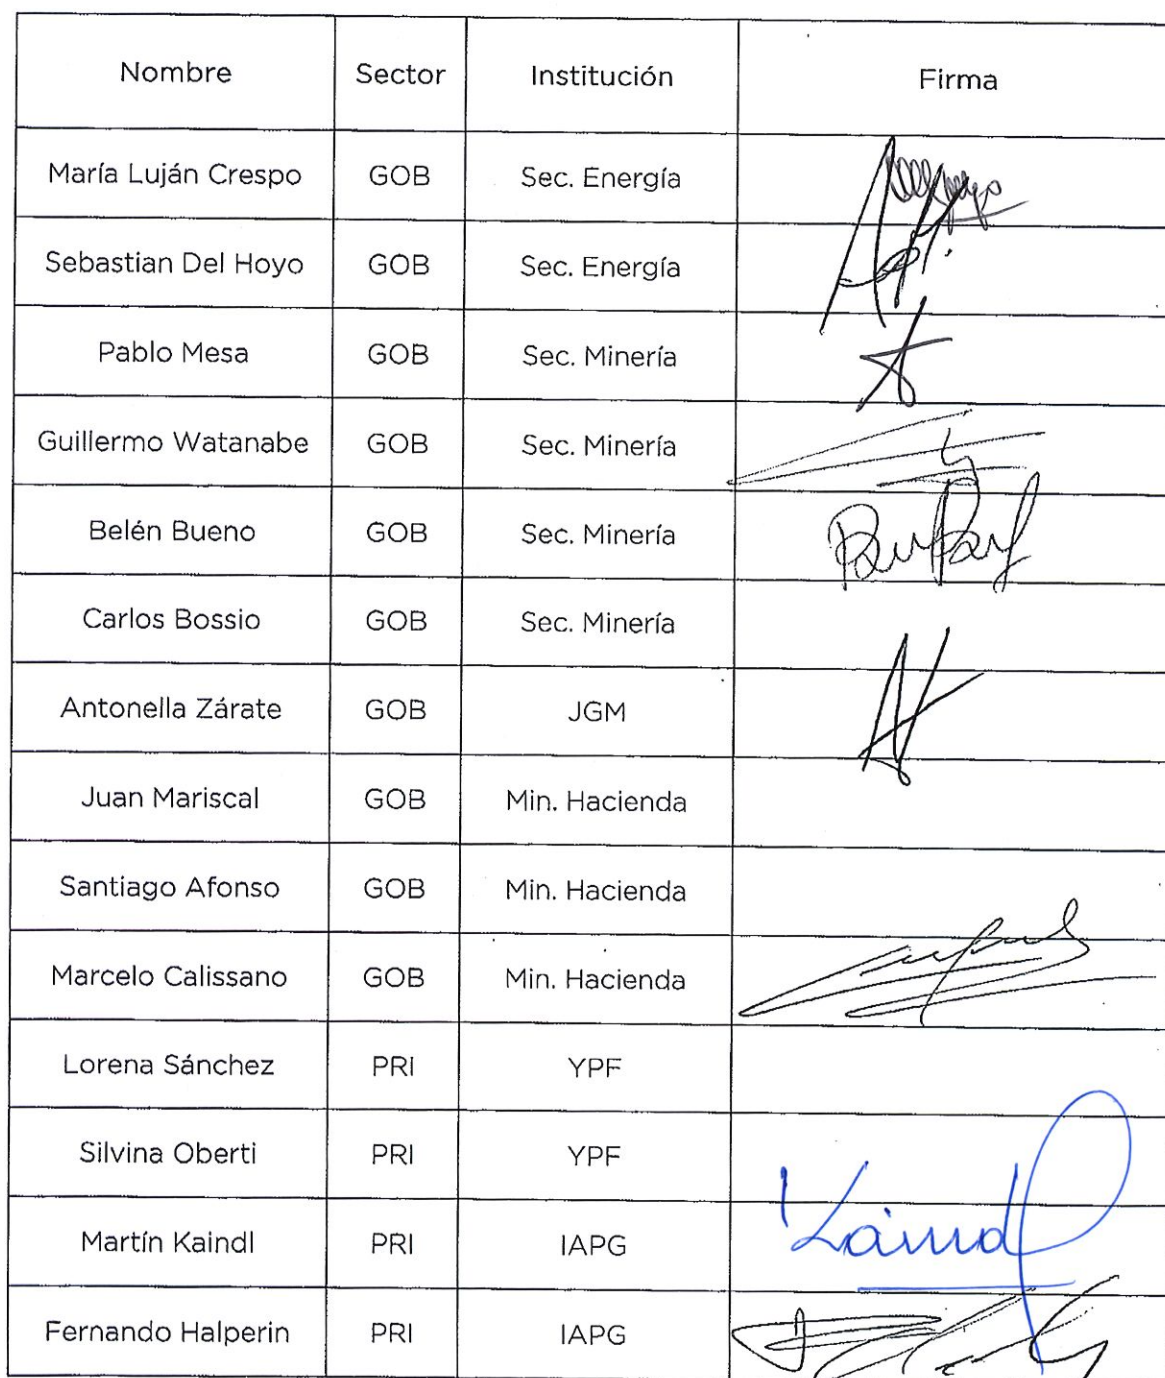 Nombre Sector Institución Firma
María Luján Crespo GOB Sec. Energía
Sebastian Del Hoyo GOB Sec. Energía
Pablo Mesa GOB Sec. Minería
Guillermo Watanabe GOB Sec. Minería
Belén Bueno GOB Sec. Minería
Carlos Bossio GOB Sec. Minería
Antonella Zárate GOB JGM
Juan Mariscal GOB Min. Hacienda
Santiago Afonso GOB Min. Hacienda
Marcelo Calissano GOB Min. Hacienda
Lorena Sánchez PRI YPF
Silvina Oberti PRI YPF
Martín Kaindl PRI IAPG Kaindl
Fernando Halperin PRI IAPG